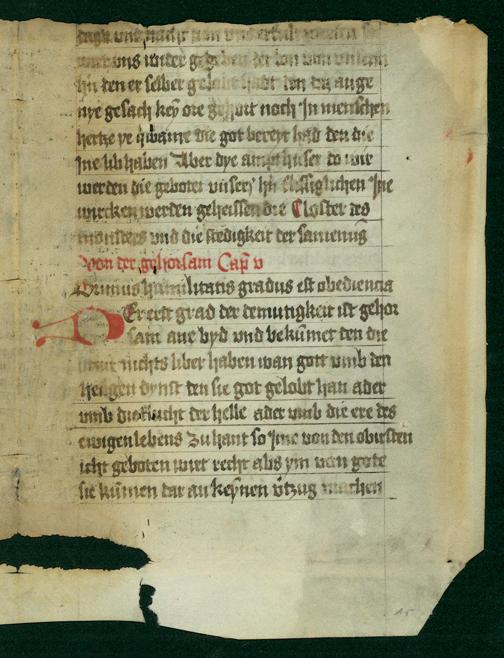 tage und nacht
uns wider gegeben der lon von unserm
hn den er selber gelobt hadt den dy auge
nye gesach key ore gehort noch In menschen
hertze ye qwame die got bereyt had den die
Ine lib haben Aber dye ampthuser do wir
werden die gebotē unsers hn flissiglichen Ine
wircken werden geheissen die Closter des
monsters und die stedigkeit der samenūg
von der gehorsam Cap̄ v
Primus humilitatis gradus est obediencia
DEr erst grad der demutigkeit ist gehor
sam ane byd und bekūmet den die
nichts liber haben wan gott umb den
heilgen dynst den sie got gelobt han ader
umb die furcht der helle ader umb die ere des
ewigen lebens Zu hant so Ine von den obirsten
icht geboten wirt recht abs ym von gote
sie kūnen dar an keynen ūtzug machen